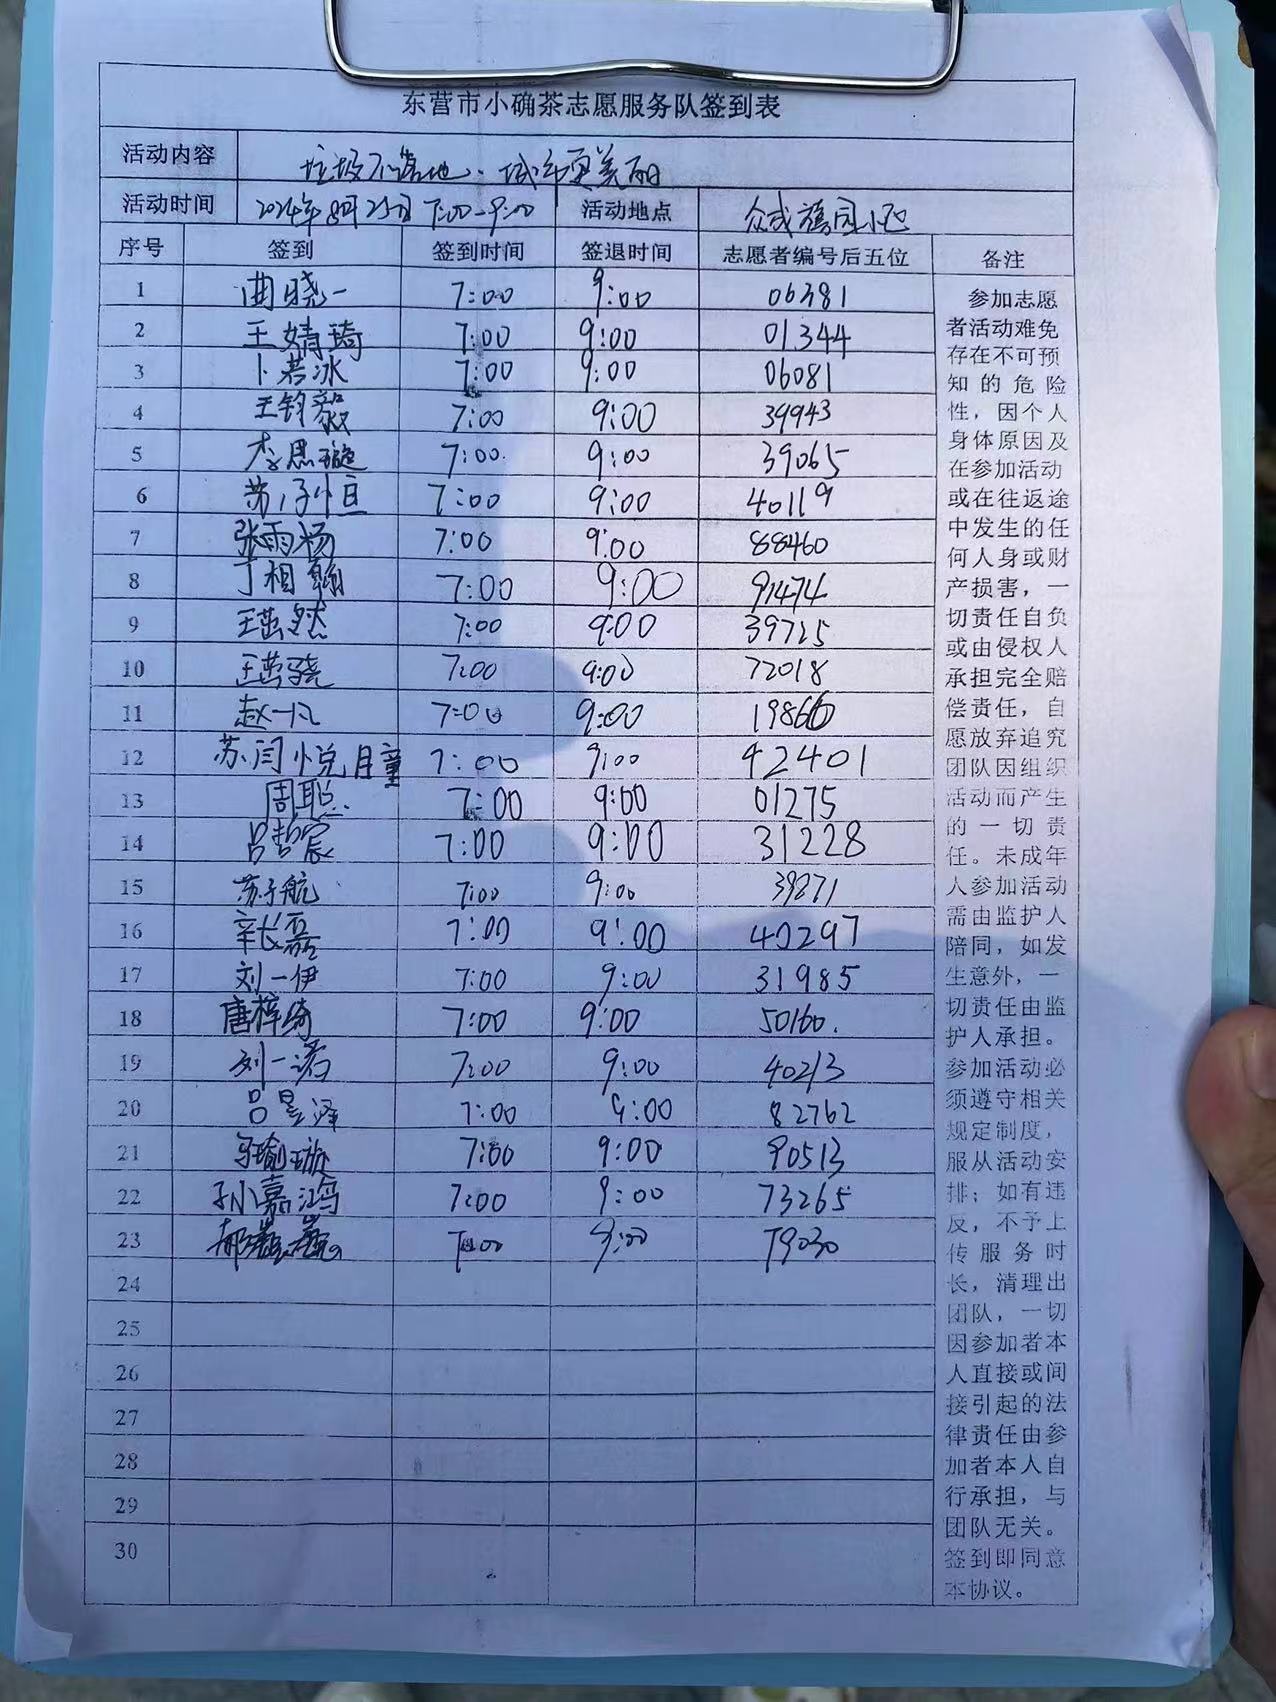 东营市小确茶志愿服务队签到表
活动内容 垃圾不落地、城市更美丽
活动时间 2024年8月25日 7:00-9:00 活动地点 众成 园小区
序号 签到 签到时间 签退时间 志愿者编号后五位 备注
1 曲晓一 7:00 9:00 06381
2 王婧琦 7:00 9:00 01344
3 卜若冰 7:00 9:00 06081
4 王钧毅 7:00 9:00 39943
5 李思璇 7:00 9:00 39065
6 7:00 9:00 40119
7 张雨杨 7:00 9:00 88460
8 丁相翰 7:00 9:00 91474
9 7:00 9:00 39725
10 7:00 9:00 72018
11 赵一凡 7:00 9:00 19866
12 苏闫悦瞳 7:00 9:00 42401
13 周聪 7:00 9:00 01275
14 吕哲宸 7:00 9:00 31228
15 苏子航 7:00 9:00 39271
16 辛长磊 7:00 9:00 40297
17 刘一伊 7:00 9:00 31985
18 唐梓绮 7:00 9:00 50160.
19 刘一诺 7:00 9:00 40213
20 吕昱泽 7:00 9:00 82762
21 马瑜璇 7:00 9:00 90513
22 孙嘉鸿 7:00 9:00 73265
23 7:00 9:00 79030
24
25
26
27
28
29
30
参加志愿
者活动难免
存在不可预
知的危险
性，因个人
身体原因及
在参加活动
或在往返途
中发生的任
何人身或财
产损害，一
切责任自负
或由侵权人
承担完全赔
偿责任，自
愿放弃追究
团队因组织
活动而产生
的一切责
任。未成年
人参加活动
需由监护人
陪同，如发
生意外，一
切责任由监
护人承担。
参加活动必
须遵守相关
规定制度，
服从活动安
排；如有违
反，不予上
传服务时
长，清理出
团队，一切
因参加者本
人直接或间
接引起的法
律责任由参
加者本人自
行承担，与
团队无关。
签到即同意
本协议。